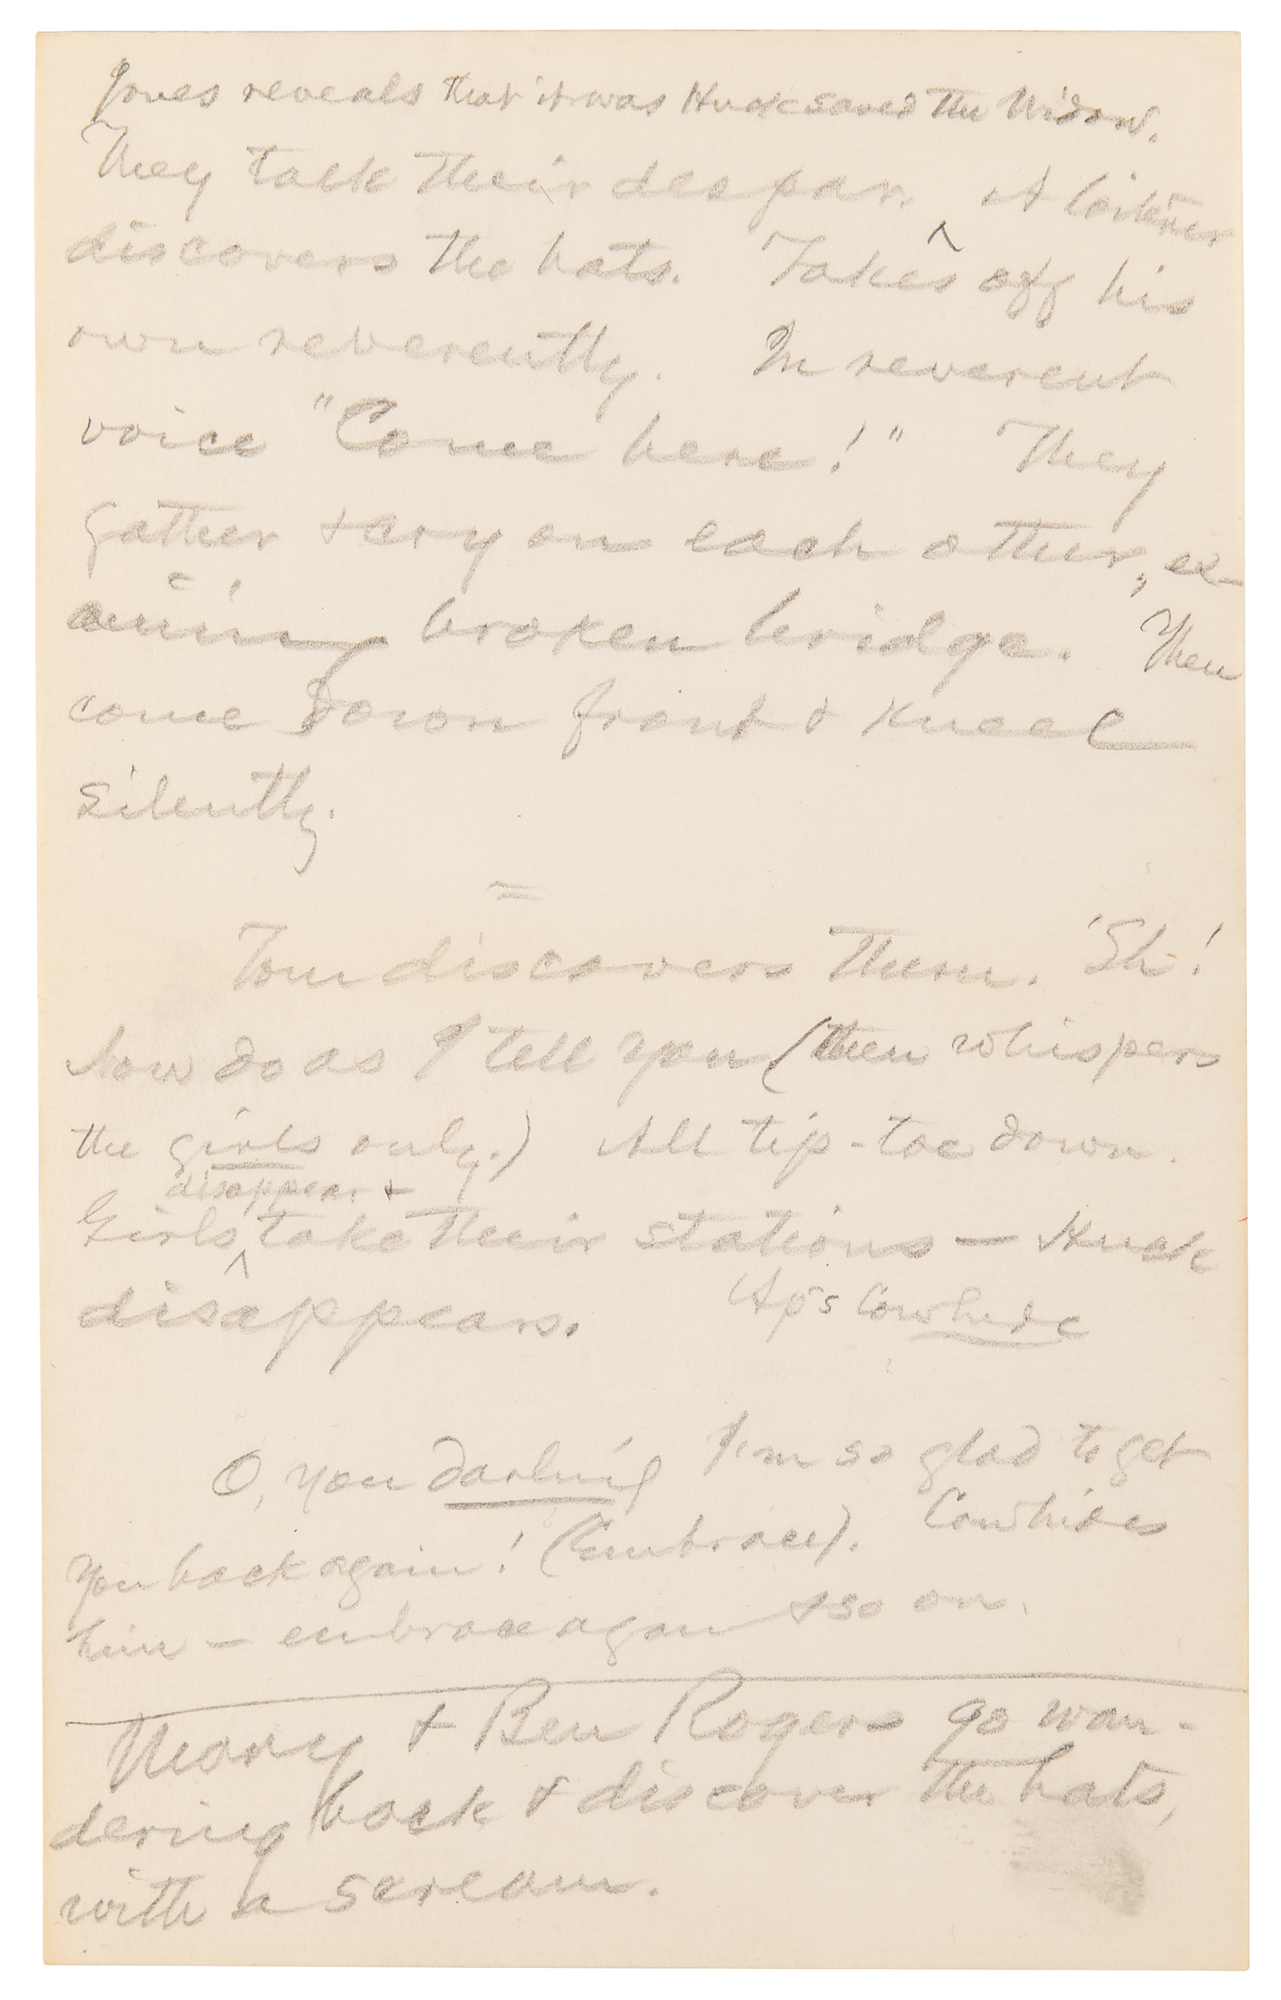 Jones reveals that it was Huck saved the Widow.
They talk their despar. A loiterer
discovers the hats. Takes ^ off his
own reverently. In reverent
voice "Come here!" They
gather & cry on each other, ex-
amining broken bridge. Then
come down front & kneel
silently.
=
Tom discovers them. 'Sh!
Now do as I tell you (then whispers
the girls only.) All tip-toe down.
disappear &
Girls ^ take their stations — Huck
disappears. cowhide
O, you darling I'm so glad to get
you back again! (Embrace). Cowhides
him — embrace agan & so on.
Mary & Ben Rogers go wan-
dering back & discover the hats,
with a scream.